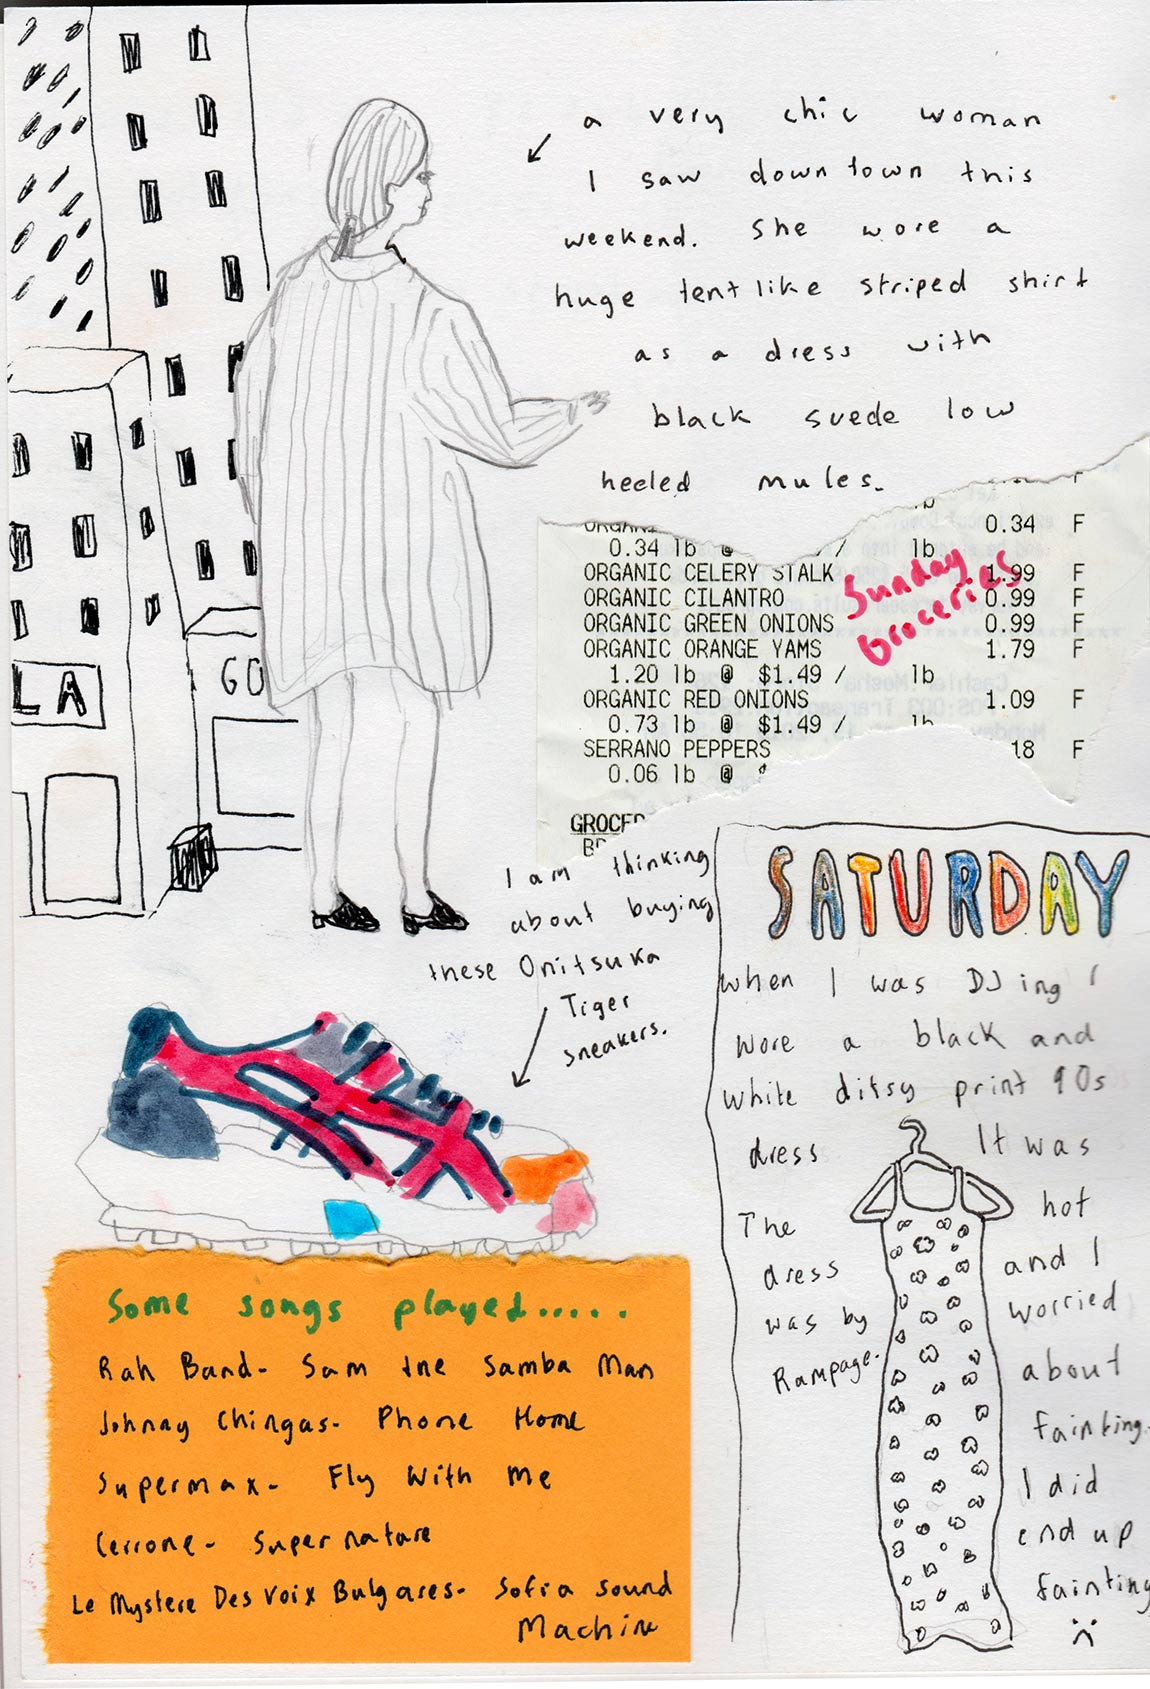 a very chic woman
I saw downtown this
weekend. She wore a
huge tent like striped shirt
as a dress with
black suede low
heeled mules.
LA
GO
lb 0.34 F
0.34 lb @ / lb
ORGANIC CELERY STALK 1.99 F
ORGANIC CILANTRO 0.99 F
ORGANIC GREEN ONIONS 0.99 F
ORGANIC ORANGE YAMS 1.79 F
1.20 lb @ $1.49 / lb
ORGANIC RED ONIONS 1.09 F
0.73 lb @ $1.49 / lb
SERRANO PEPPERS 18 F
0.06 lb @
Sunday
Groceries
I am thinking
about buying
these Onitsuka
Tiger
sneakers.
SATURDAY
When I was DJing I
wore a black and
white ditsy print 90s
dress
The
dress
was by
Rampage.
It was
hot
and I
worried
about
fainting.
I did
end up
fainting
:(
Some songs played.....
Rah Band- Sam the Samba Man
Johnny Chingas- Phone Home
Supermax- Fly With Me
Cerrone- Supernature
Le Mystere Des Voix Bulgares- Sofia Sound
Machine